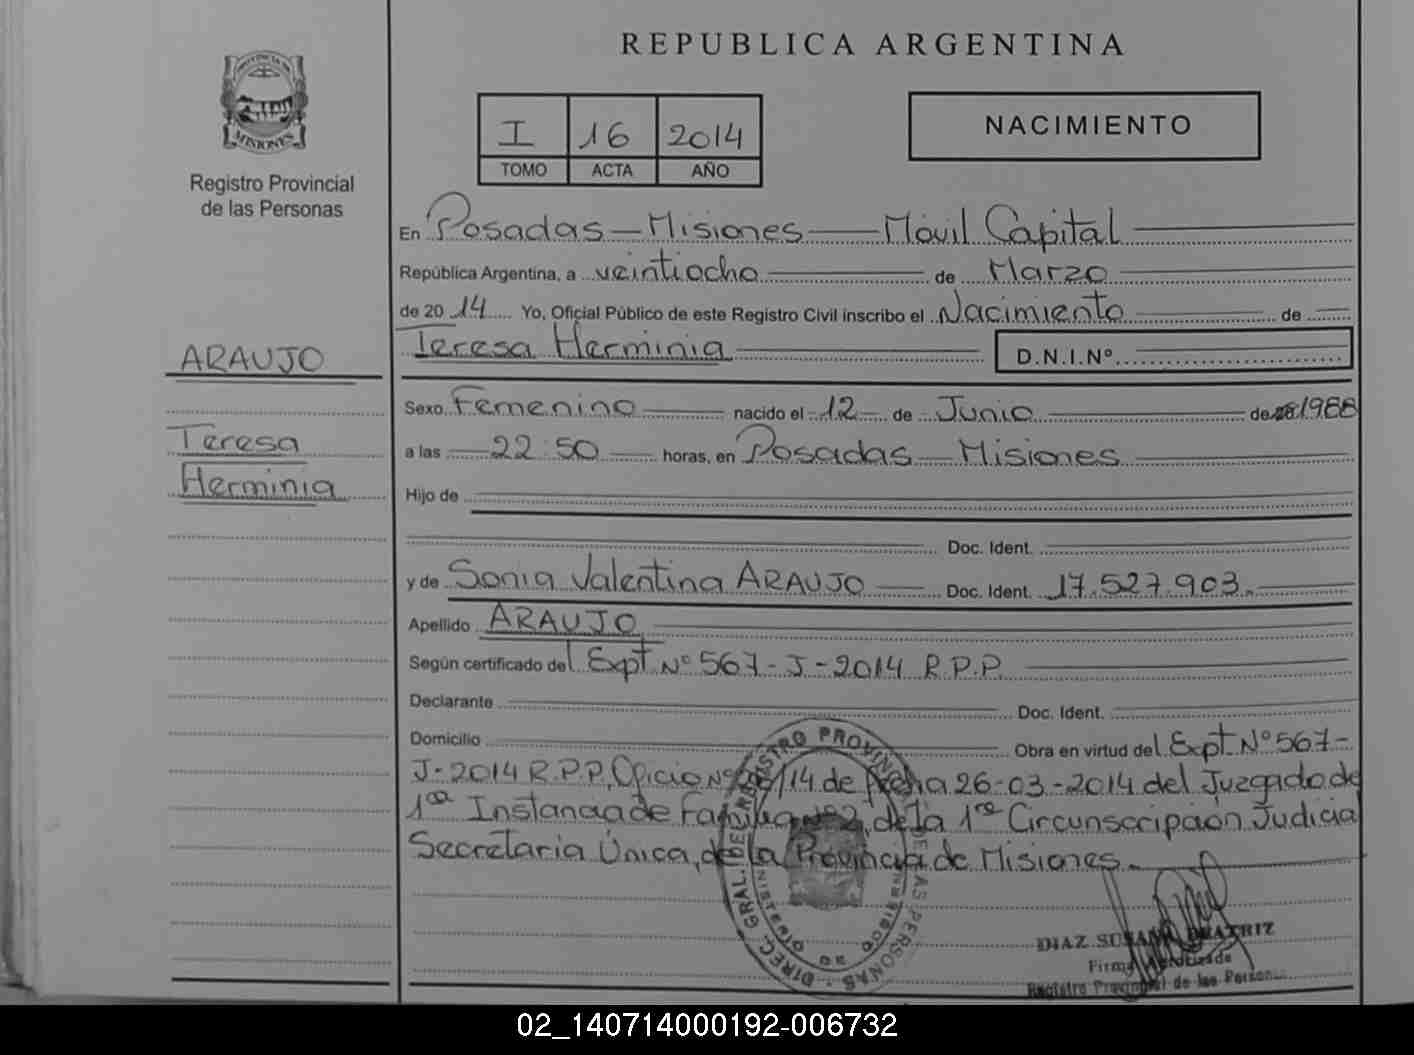 REPUBLICA ARGENTINA
PROVINCIA DE
MISIONES
Registro Provincial
de las Personas
I 16 2014
TOMO ACTA AÑO
NACIMIENTO
En Posadas — Misiones — Móvil Capital
República Argentina, a veintiocho de Marzo
de 2014 Yo, Oficial Público de este Registro Civil inscribo el Nacimiento de
Teresa Herminia D.N.I.Nº
ARAUJO
Teresa
Herminia
Sexo Femenino nacido el 12 de Junio de 1988
a las 22:50 horas, en Posadas Misiones
Hijo de
Doc. Ident.
y de Sonia Valentina ARAUJO Doc. Ident. 17.527.903.
Apellido ARAUJO
Según certificado del Expt. Nº 567-J-2014 R.P.P.
Declarante Doc. Ident.
Domicilio Obra en virtud del Expt. Nº 567-
J-2014 R.P.P, Oficio Nº /14 de fecha 26-03-2014 del Juzgado de
1ra Instancia de Familia Nº 2, de la 1ra Circunscripción Judicial
Secretaria Única, de la Provincia de Misiones.
DIREC. GRAL. DEL REGISTRO PROVINCIAL DE LAS PERSONAS
DIAZ SUSANA BEATRIZ
Firma Autorizada
Registro Provincial de las Personas
02_140714000192-006732